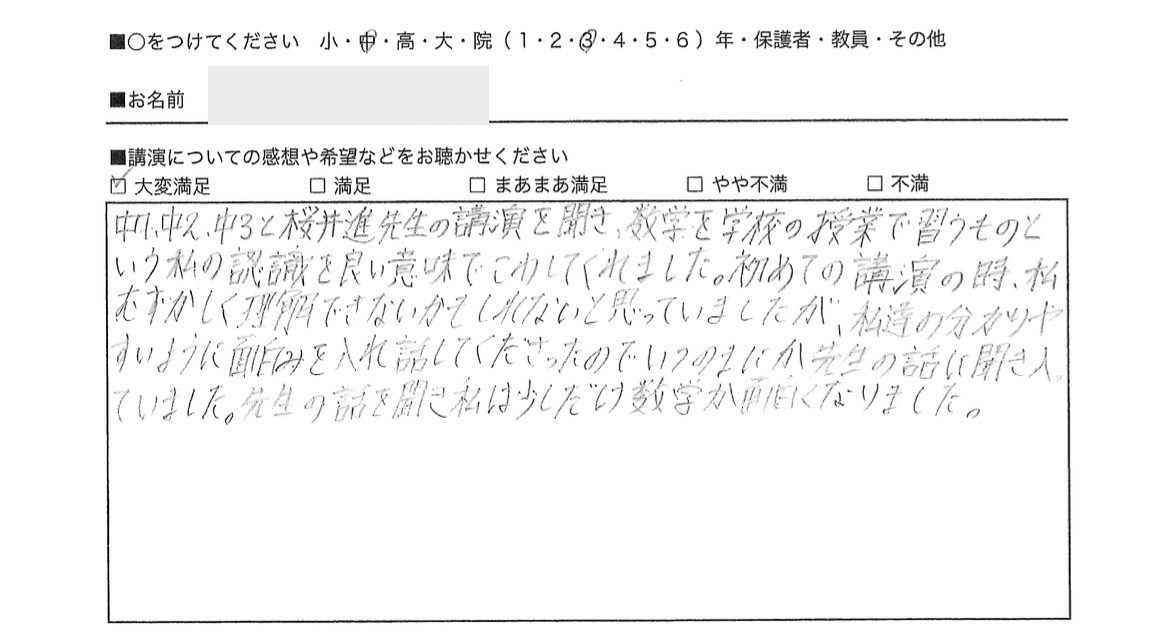 ■○をつけてください 小・中・高・大・院（1・2・3・4・5・6）年・保護者・教員・その他
■お名前
■講演についての感想や希望などをお聴かせください
☑ 大変満足 □ 満足 □ まあまあ満足 □ やや不満 □ 不満
中1、中2、中3と桜井進先生の講演を聞き、数学を学校の授業で習うものと
いう私の認識を良い意味でこわしてくれました。初めての講演の時、私
むずかしく理解できないかもしれないと思っていましたが、私達の分かりや
すいように面白みを入れ話してくださったのでいつのまにか先生の話に聞き入っ
ていました。先生の話を聞き私は少しだけ数学が面白くなりました。